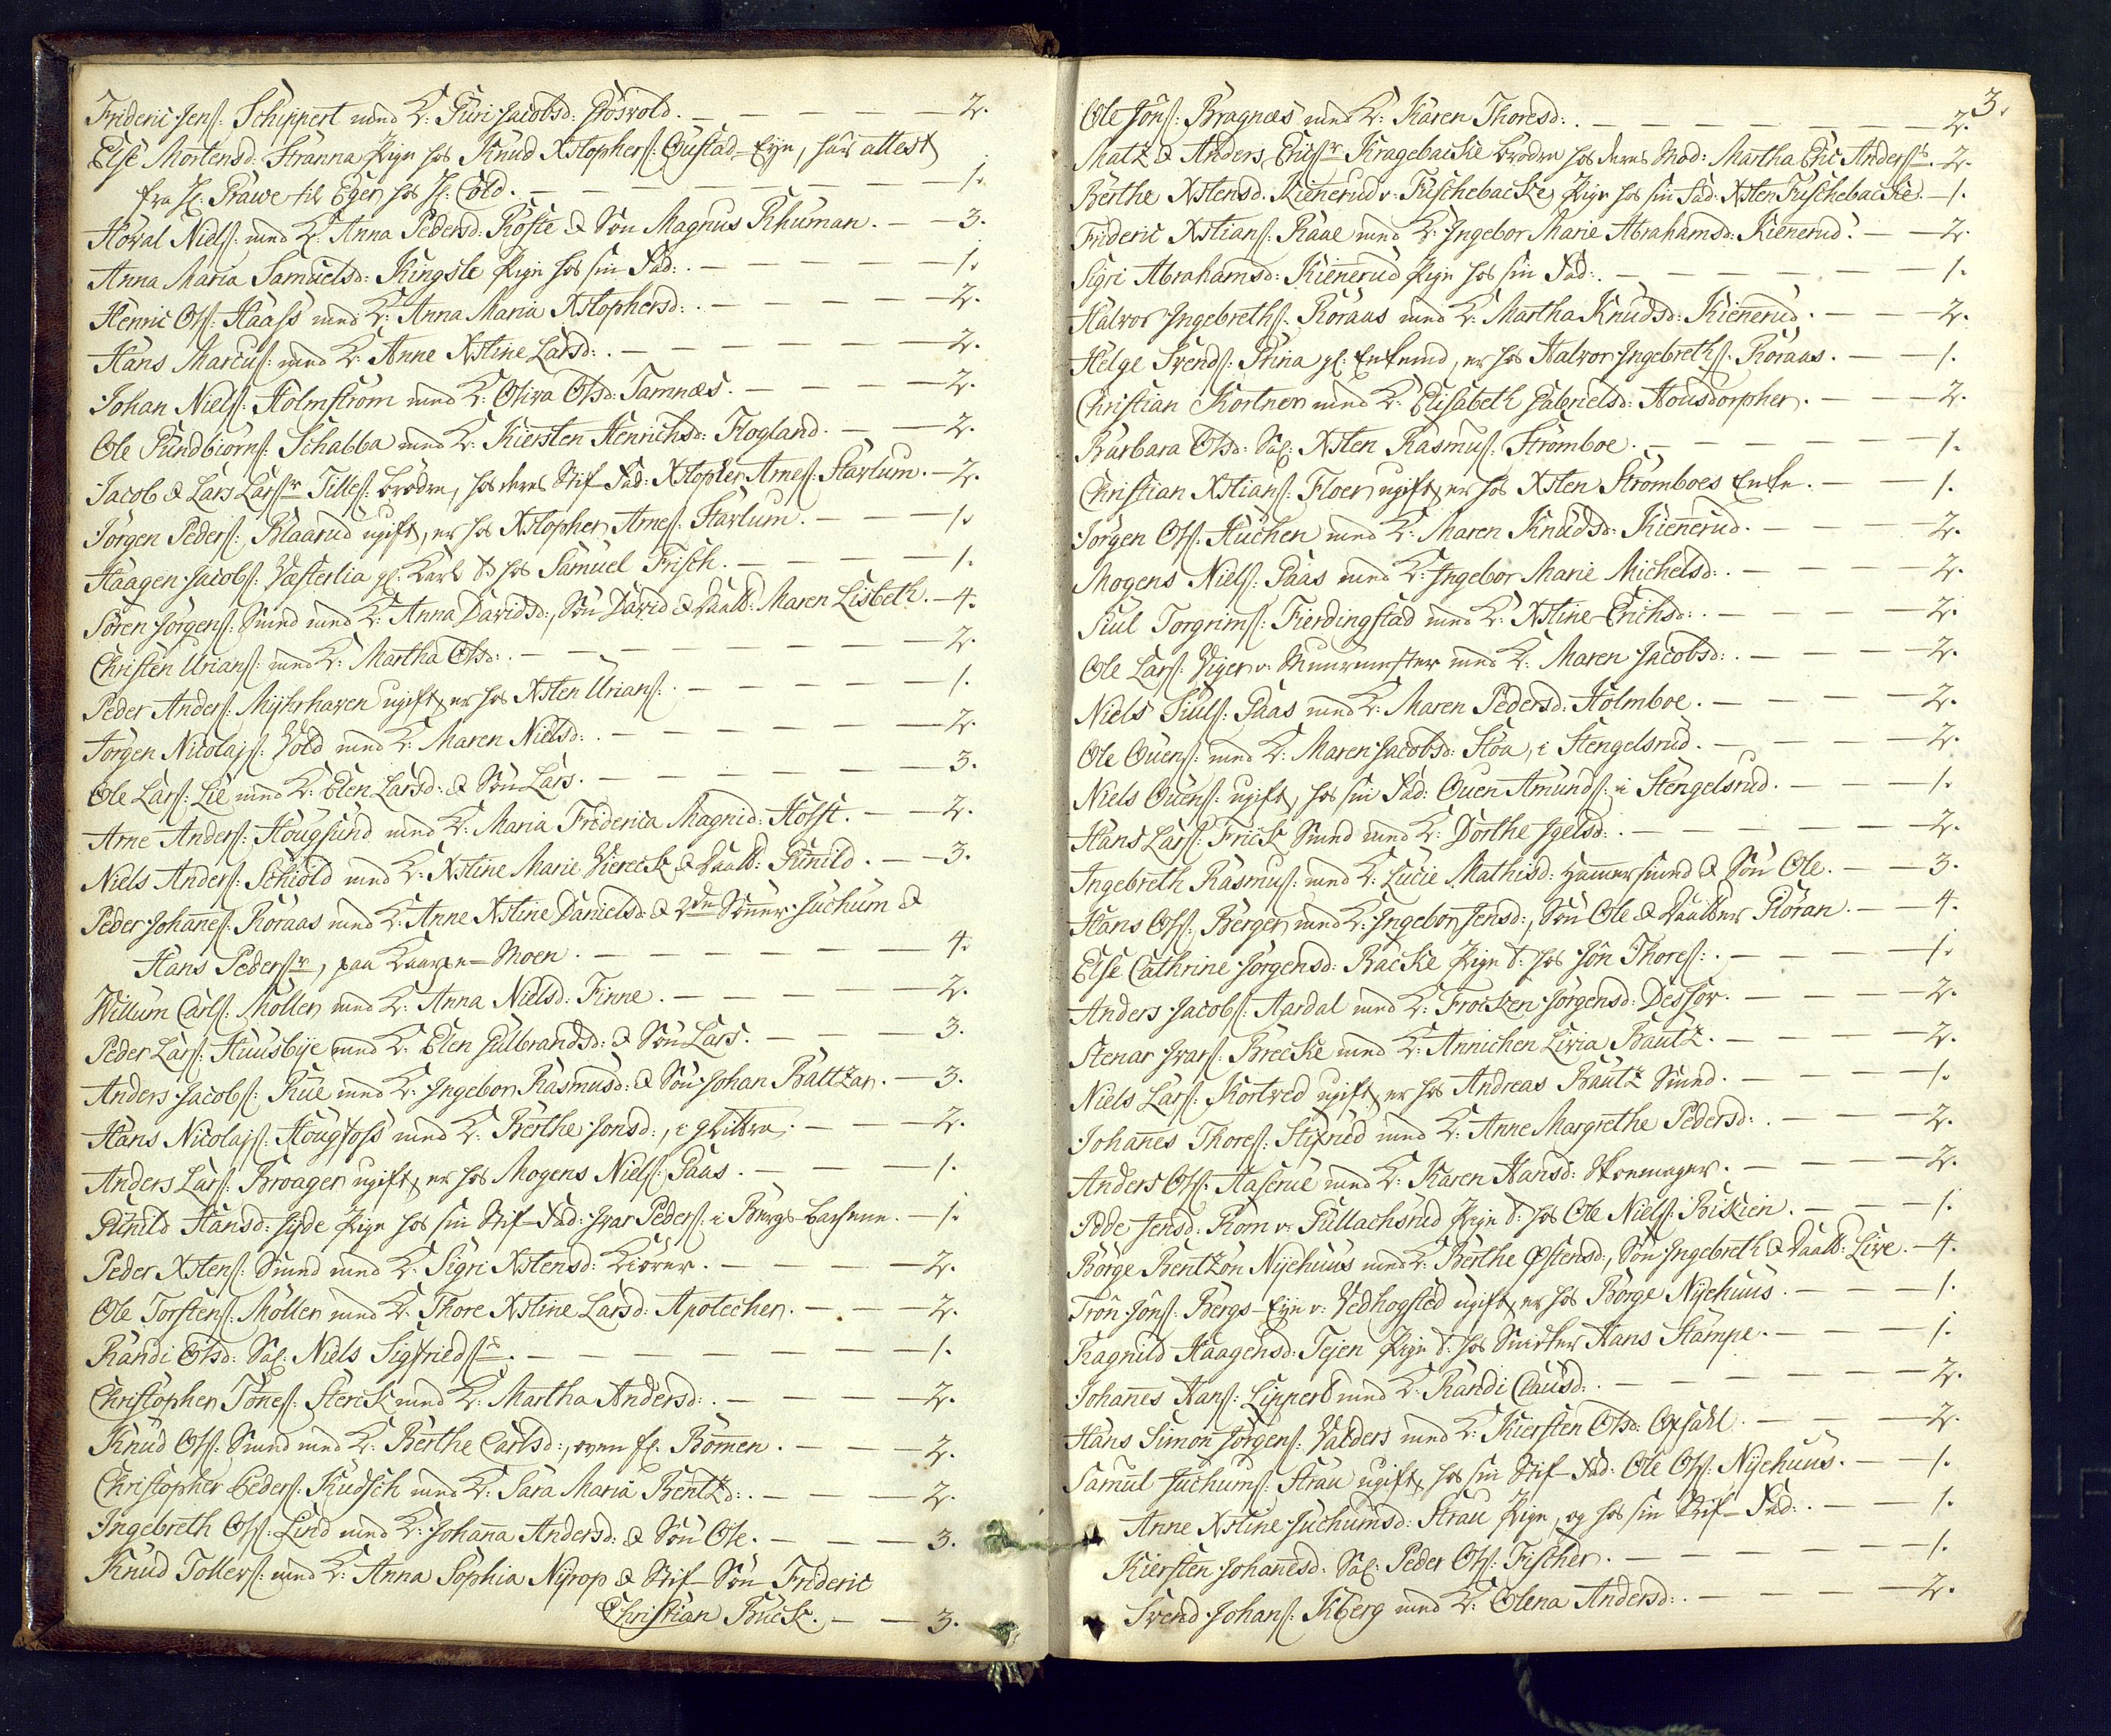 Frideric Jenſ: Schippert med K: Guri Jacobsd: Goswold. — — — — — 2.
Else Mortensd: Stranna Pige hos Knud Xstopherſ: Oustad-Eye, har attest
fra H: Prawe til Eger hos H: Cold. — — — — — 1.
Hoval Nielſ: med K: Anna Pedersd: Röfte & Sön Magnus Rhuman. — 3.
Anna Maria Samuelsd: Kingsle Pige hos sin Fad: — — — — — 1.
Henric Olſ: Haass med K: Anna Maria Xstophersd: — — — — — 2.
Hans Marcuſ: med K: Anne Xstine Larsd: — — — — — 2.
Johan Nielſ: Holmström med K: Oliva Olsd: Tamnæs. — — — — 2.
Ole Gundbiörnſ: Schabba med K: Kiersten Henrichsd: Flogland. — — 2.
Jacob & Lars Larſr Tilleſ: brödre, hos deres Stif-Fad: Xstopher Arneſ: Starlum. — 2.
Jörgen Pederſ: Blaarud ugift, er hos Xstopher Arneſ: Starlum. — — — 1.
Haagen Jacobſ: Vesterlia gl: Karl t: hos Samuel Frisch. — — — — 1.
Sören Jörgenſ: Smed med K: Anna Davidsd:, Sön David & Daatt: Maren Lisbeth. — 4.
Christen Urianſ: med K: Martha Olsd: — — — — — — 2.
Peder Anderſ: Myhrhaven ugift, er hos Xsten Urianſ: — — — — — 1.
Jörgen Nicolajſ: Vold med K: Maren Nielsd: — — — — — 2.
Ole Larſ: Lie med K: Elen Larsd: & Sön Lars. — — — — — 3.
Arne Anderſ: Hougsund med K: Maria Friderica Magnid: Holst. — — 2.
Niels Anderſ: Schiöld med K: Xstine Marie Viereck & Daatt: Gunild. — — 3.
Peder Johaneſ: Röraas med K: Anne Xstine Danielsd: & 2de Sönner Juchum &
Hans Pederſr, paa Moen. — — — — — 4.
Willum Carlſ: Möller med K: Anna Nielsd: Finne. — — — — 2.
Peder Larſ: Huusbye med K: Elen Gulbrandsd: & Sön Lars. — — — 3.
Anders Jacobſ: Rue med K: Ingebor Rasmusd: & Sön Johan Baltzar. — 3.
Hans Nicolajſ: Hougfoss med K: Berthe Jonsd:, i Glittra. — — — 2.
Anders Larſ: Broager ugift, er hos Mogens Nielſ: Paas. — — — 1.
Gunild Hansd: Hyde Pige hos sin Stif-Fad: Ivar Pederſ: i Bergs — 1.
Peder Xstenſ: Smed med K: Sigri Xstensd: Kiörer. — — — — 2.
Ole Torstenſ: Möller med K: Thore Xstine Larsd: Apotecher. — — 2.
Randi Olsd: Sal: Niels Sigfriedſs. — — — — — — 1.
Christopher Töneſ: Sterck med K: Martha Andersd: — — 2.
Knud Olſ: Smed med K: Berthe Carlsd:, oven fr. Bommen. — — — 2.
Christopher Pederſ: Kudsch med K: Sara Maria Bentzd: — — — 2.
Ingebreth Olſ: Lind med K: Johanna Andersd: & Sön Ole. — — — 3.
Knud Tollevſ: med K: Anna Sophia Nyrop & Stif-Sön Frideric
Christian Buck. — — 3.
3.
Ole Jönſ: Bragnæs med K: Karen Thoresd: — — — — — 2.
Matz & Anders Ericſr Kragebacke brödre hos deres Mod: Martha Eric Anderſs. 2.
Berthe Xstensd: Kienerud v: Fuschebacke, Pige hos sin Fad: Xsten Fuschebacke. — 1.
Frideric Xstianſ: Raae med K: Ingebor Marie Abrahamsd: Kienerud. — — 2.
Sigri Abrahamsd: Kienerud Pige hos sin Fad: — — — — — — 1.
Halvor Ingebrethſ: Röraas med K: Martha Knudsd: Kienerud. — — — 2.
Helge Svendſ: Prina gl: Enkemd, er hos Halvor Ingebrethſ: Röraas. — — 1.
Christian Kortner med K: Elisabeth Gabrielsd: Housdorpher. — — — 2.
Barbara Olsd: Sal: Xsten Rasmuſ: Strömboe. — — — — — — 1.
Christian Xstianſ: Floer ugift, er hos Xsten Strömboes Enke. — — 1.
Jörgen Olſ: Kuchen med K: Maren Knudsd: Kienerud. — — — — 2.
Mogens Nielſ: Paas med K: Ingebor Marie Michelsd: — — — — 2.
Siul Torgrimſ: Fierdingstad med K: Xstine Erichsd: — — — — 2.
Ole Larſ: Viger v: Muurmester med K: Maren Jacobsd: — — — — 2.
Niels Siulſ: Paas med K: Maren Pedersd: Holmboe. — — — — 2.
Ole Ouenſ: med K: Maren Jacobsd: Stoa, i Stengelsrud. — — — — 2.
Niels Ouenſ: ugift, hos sin Fad: Ouen Amundſ: i Stengelsrud. — — — 1.
Hans Larſ: Frick Smed med K: Dorthe Igelsd: — — — — — 2.
Ingebreth Rasmuſ: med K: Lucie Mathisd: Hamersmed & Sön Ole. — — 3.
Hans Olſ: Berger med K: Ingebor Jensd:, Sön Ole & Daatter Röran. — — 4.
Else Cathrine Jörgensd: Backe Pige t: hos Jön Thoreſ: — — — — 1.
Anders Jacobſ: Aardal med K: Frocken Jörgensd: Desser. — — — — 2.
Stenar Ivarſ: Brecke med K: Annichen Livia Bautz. — — — — 2.
Niels Larſ: Kortved ugift, er hos Andreas Bautz Smed. — — — — 1.
Johanes Thoreſ: Stifried med K: Anne Margrethe Pedersd: — — — 2.
Anders Olſ: Aaserue med K: Karen Hansd: Skomager. — — — — 2.
Pode Jensd: Rom v: Gullachsrud Pige t: hos Ole Nielſ: Biskien. — — — 1.
Börge Bentzön Nyehuus med K: Berthe Østensd:, Sön Ingebreth & Daatt: Live. — 4.
Trön Jönſ: Bergs-Eye v: Vedhogsted ugift, er hos Börge Nyehuus. — — 1.
Ragnild Haagensd: Tejen Pige t: hos Snidker Hans Stampe. — — — 1.
Johanes Hanſ: Lippert med K: Randi Clausd: — — — — — 2.
Hans Simon Jörgenſ: Valders med K: Kiersten Olsd: Opsahl. — — — 2.
Samuel Juchumſ: Strau ugift, hos sin Stif-Fad: Ole Olſ: Nyehuus. — — 1.
Anne Xstine Juchumsd: Strau Pige, og hos sin Stif-Fad: — — 1.
Kiersten Johanesd: Sal: Peder Olſ: Fischer. — — — — — 1.
Svend Johanſ: Kberg med K: Olena Andersd: — — — — 2.